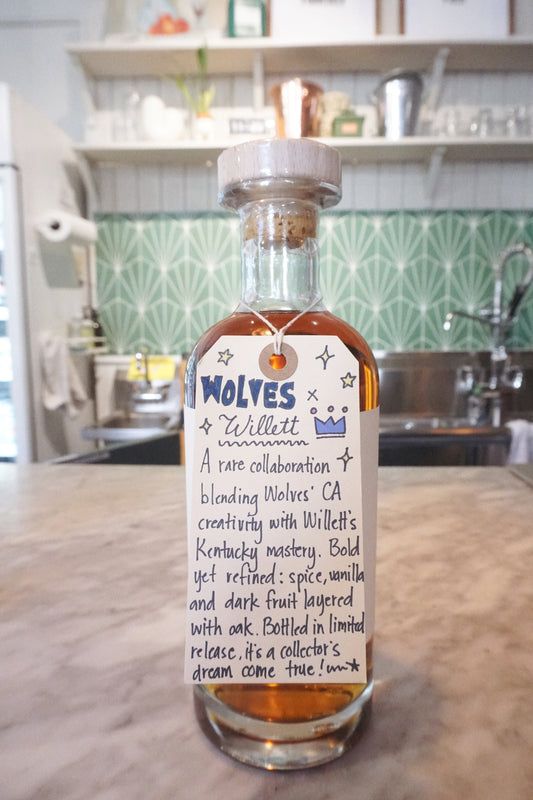 WOLVES x
Willett
A rare collaboration
blending Wolves' CA
creativity with Willett's
Kentucky mastery. Bold
yet refined: spice, vanilla
and dark fruit layered
with oak. Bottled in limited
release, it's a collector's
dream come true!